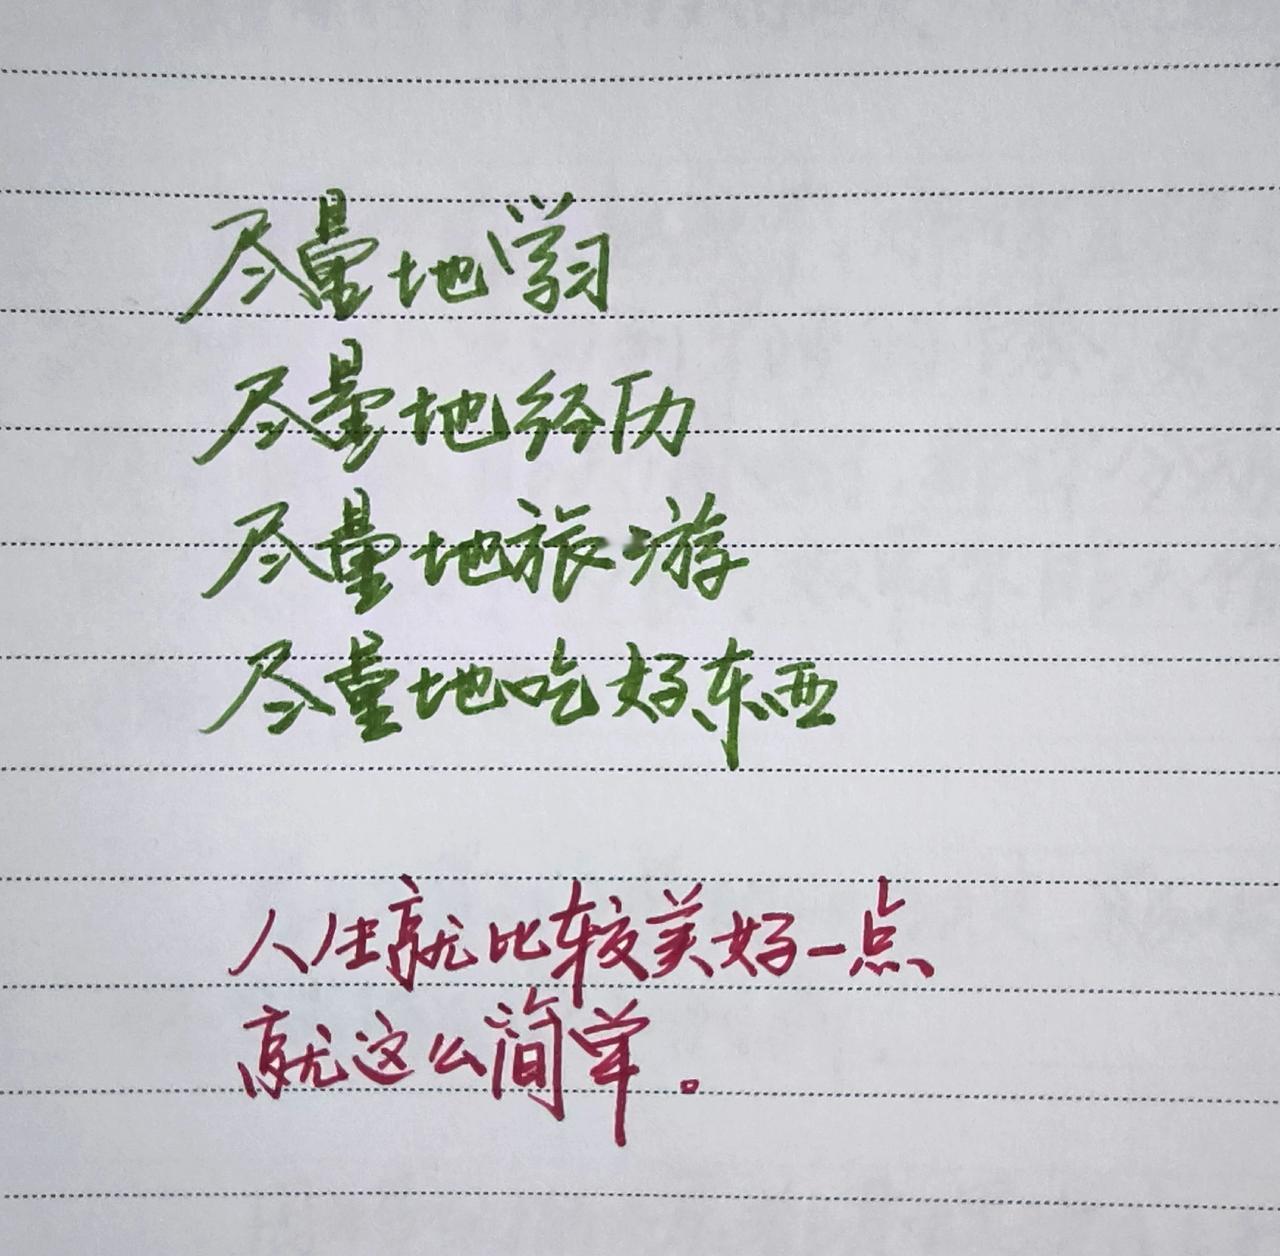 尽量地学习
尽量地经历
尽量地旅游
尽量地吃好东西
人生就比较美好一点
就这么简单。